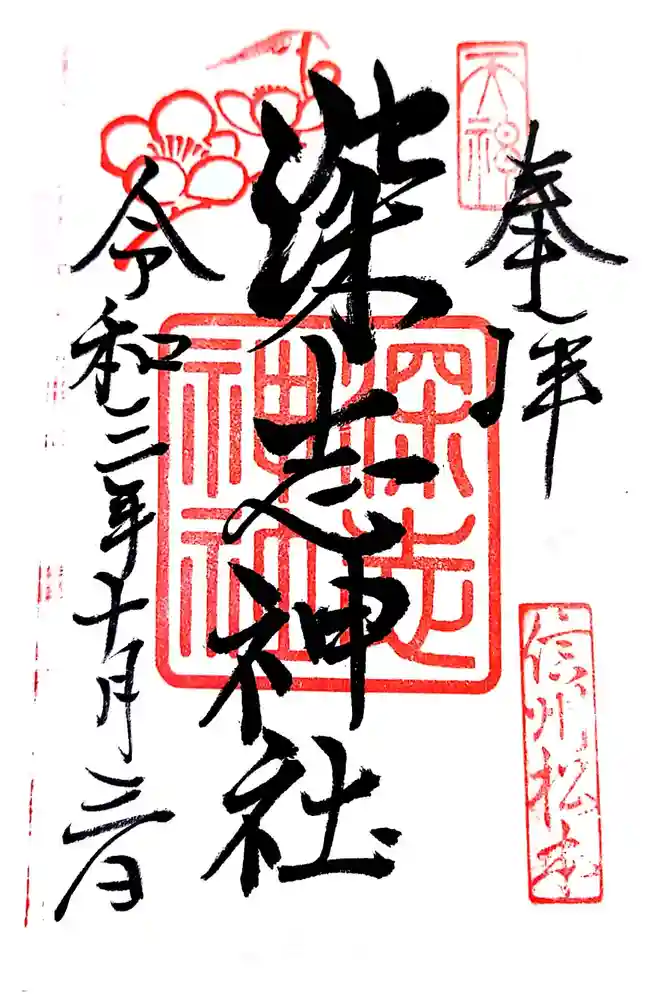 天神
奉拝
信州松本
深志神社
深志
神社
令和三年十月三日